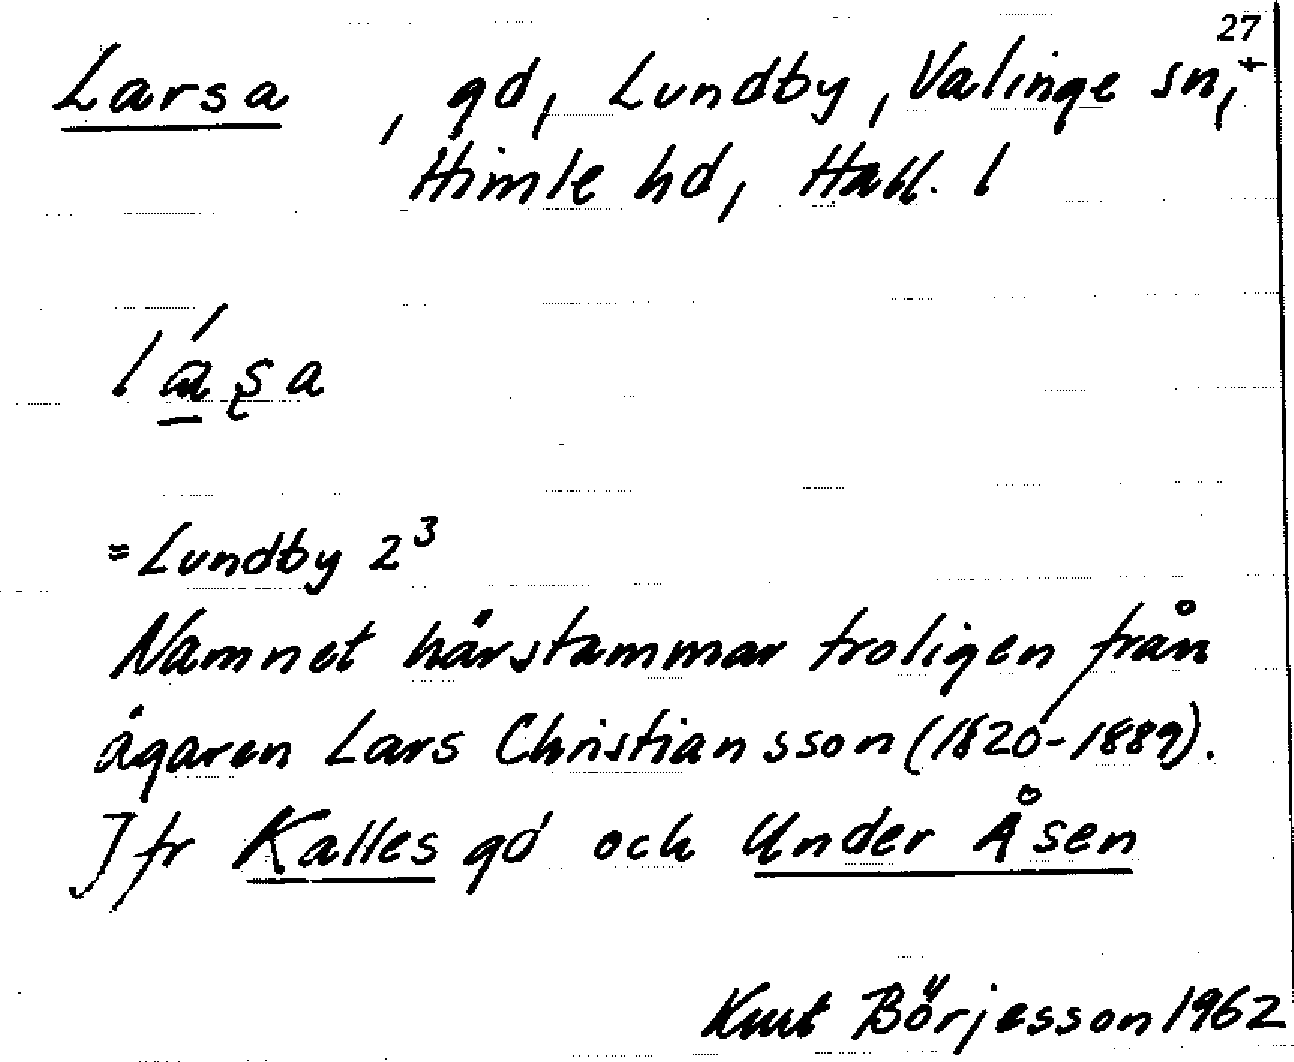 27
Larsa , gd, Lundby, Valinge sn, +
Himle hd, Hall. l
= Lundby 2³
Namnet härstammar troligen från
ägaren Lars Christiansson (1820-1889).
Jfr Kalles gd och Under Åsen
Kurt Börjesson 1962